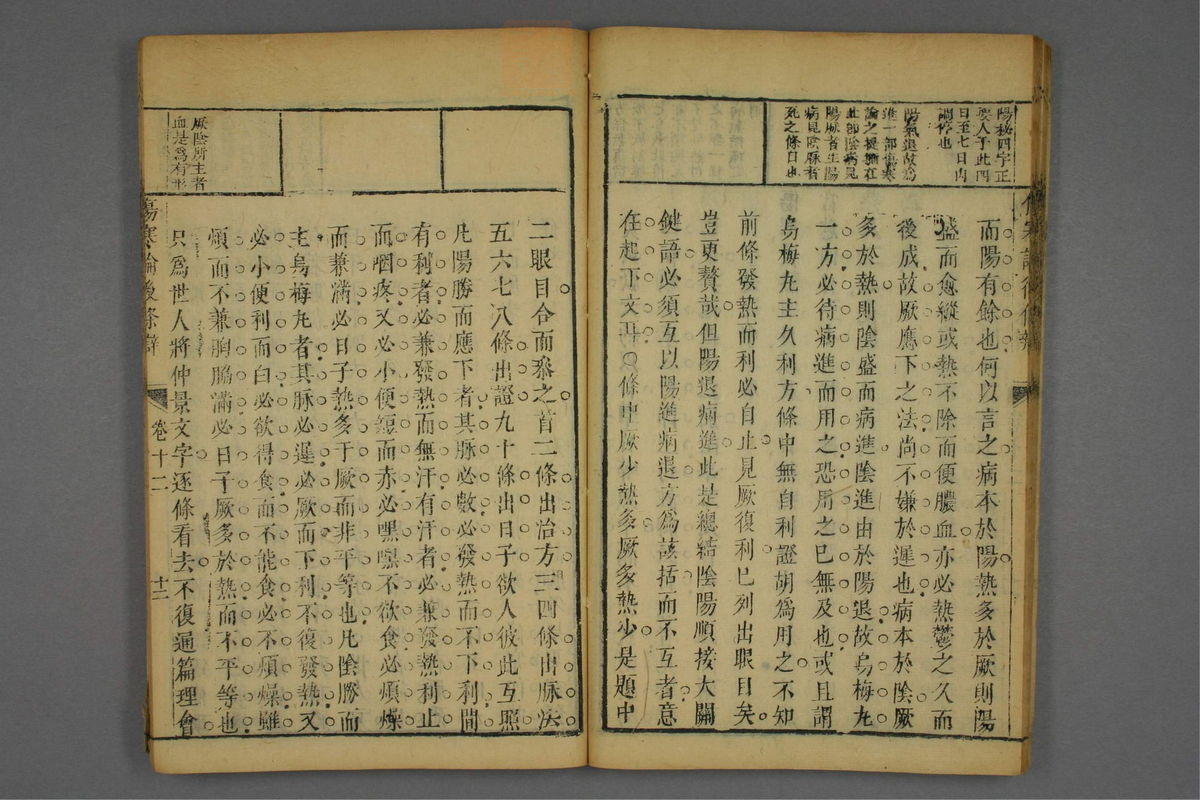 陽極四字正
要人于此四
日至七日內
調停也
陽氣退故爲
進一部傷寒
論之提撕在
此部陰病見
陽脈者生陽
病見陰脈者
死之條目也
而陽有餘也何以言之病本於陽熱多於厥則陽
盛而愈縱或熱不除而便膿血亦必熱鬱之久而
後成故厥應下之法尚不嫌於遲也病本於陰厥
多於熱則陰盛而病進陰進由於陽退故烏梅丸
一方必待病進而用之恐用之已無及也或且謂
烏梅丸主久利方條中無自利證胡爲用之不知
前條發熱而利必自止見厥復利已列出眼目矣
豈更贅哉但陽退病進此是總結陰陽順接大關
鍵語必須互以陽進病退方爲該括而不互者意
在起下文耳〇條中厥少熱多厥多熱少是題中
厥陰所主者
血是爲有形
傷寒論後條辯
卷十二
十二
二眼目合而叅之首二條出治方三四條出脈法
五六七八條出證九十條出日子欲人彼此互照
凡陽勝而應下者其脈必數必發熱而不下利間
有利者必兼發熱而無汗有汗者必兼發熱利止
而咽疼又必小便短而赤必嘿嘿不欲食必煩燥
而兼滿必日子熱多于厥而非平等也凡陰勝而
主烏梅丸者其脈必遲必厥而下利不復發熱又
必小便利而白必欲得食而不能食必不煩燥雖
煩而不兼胸脇滿必日子厥多於熱而不平等也
只爲世人將仲景文字逐條看去不復通篇理會